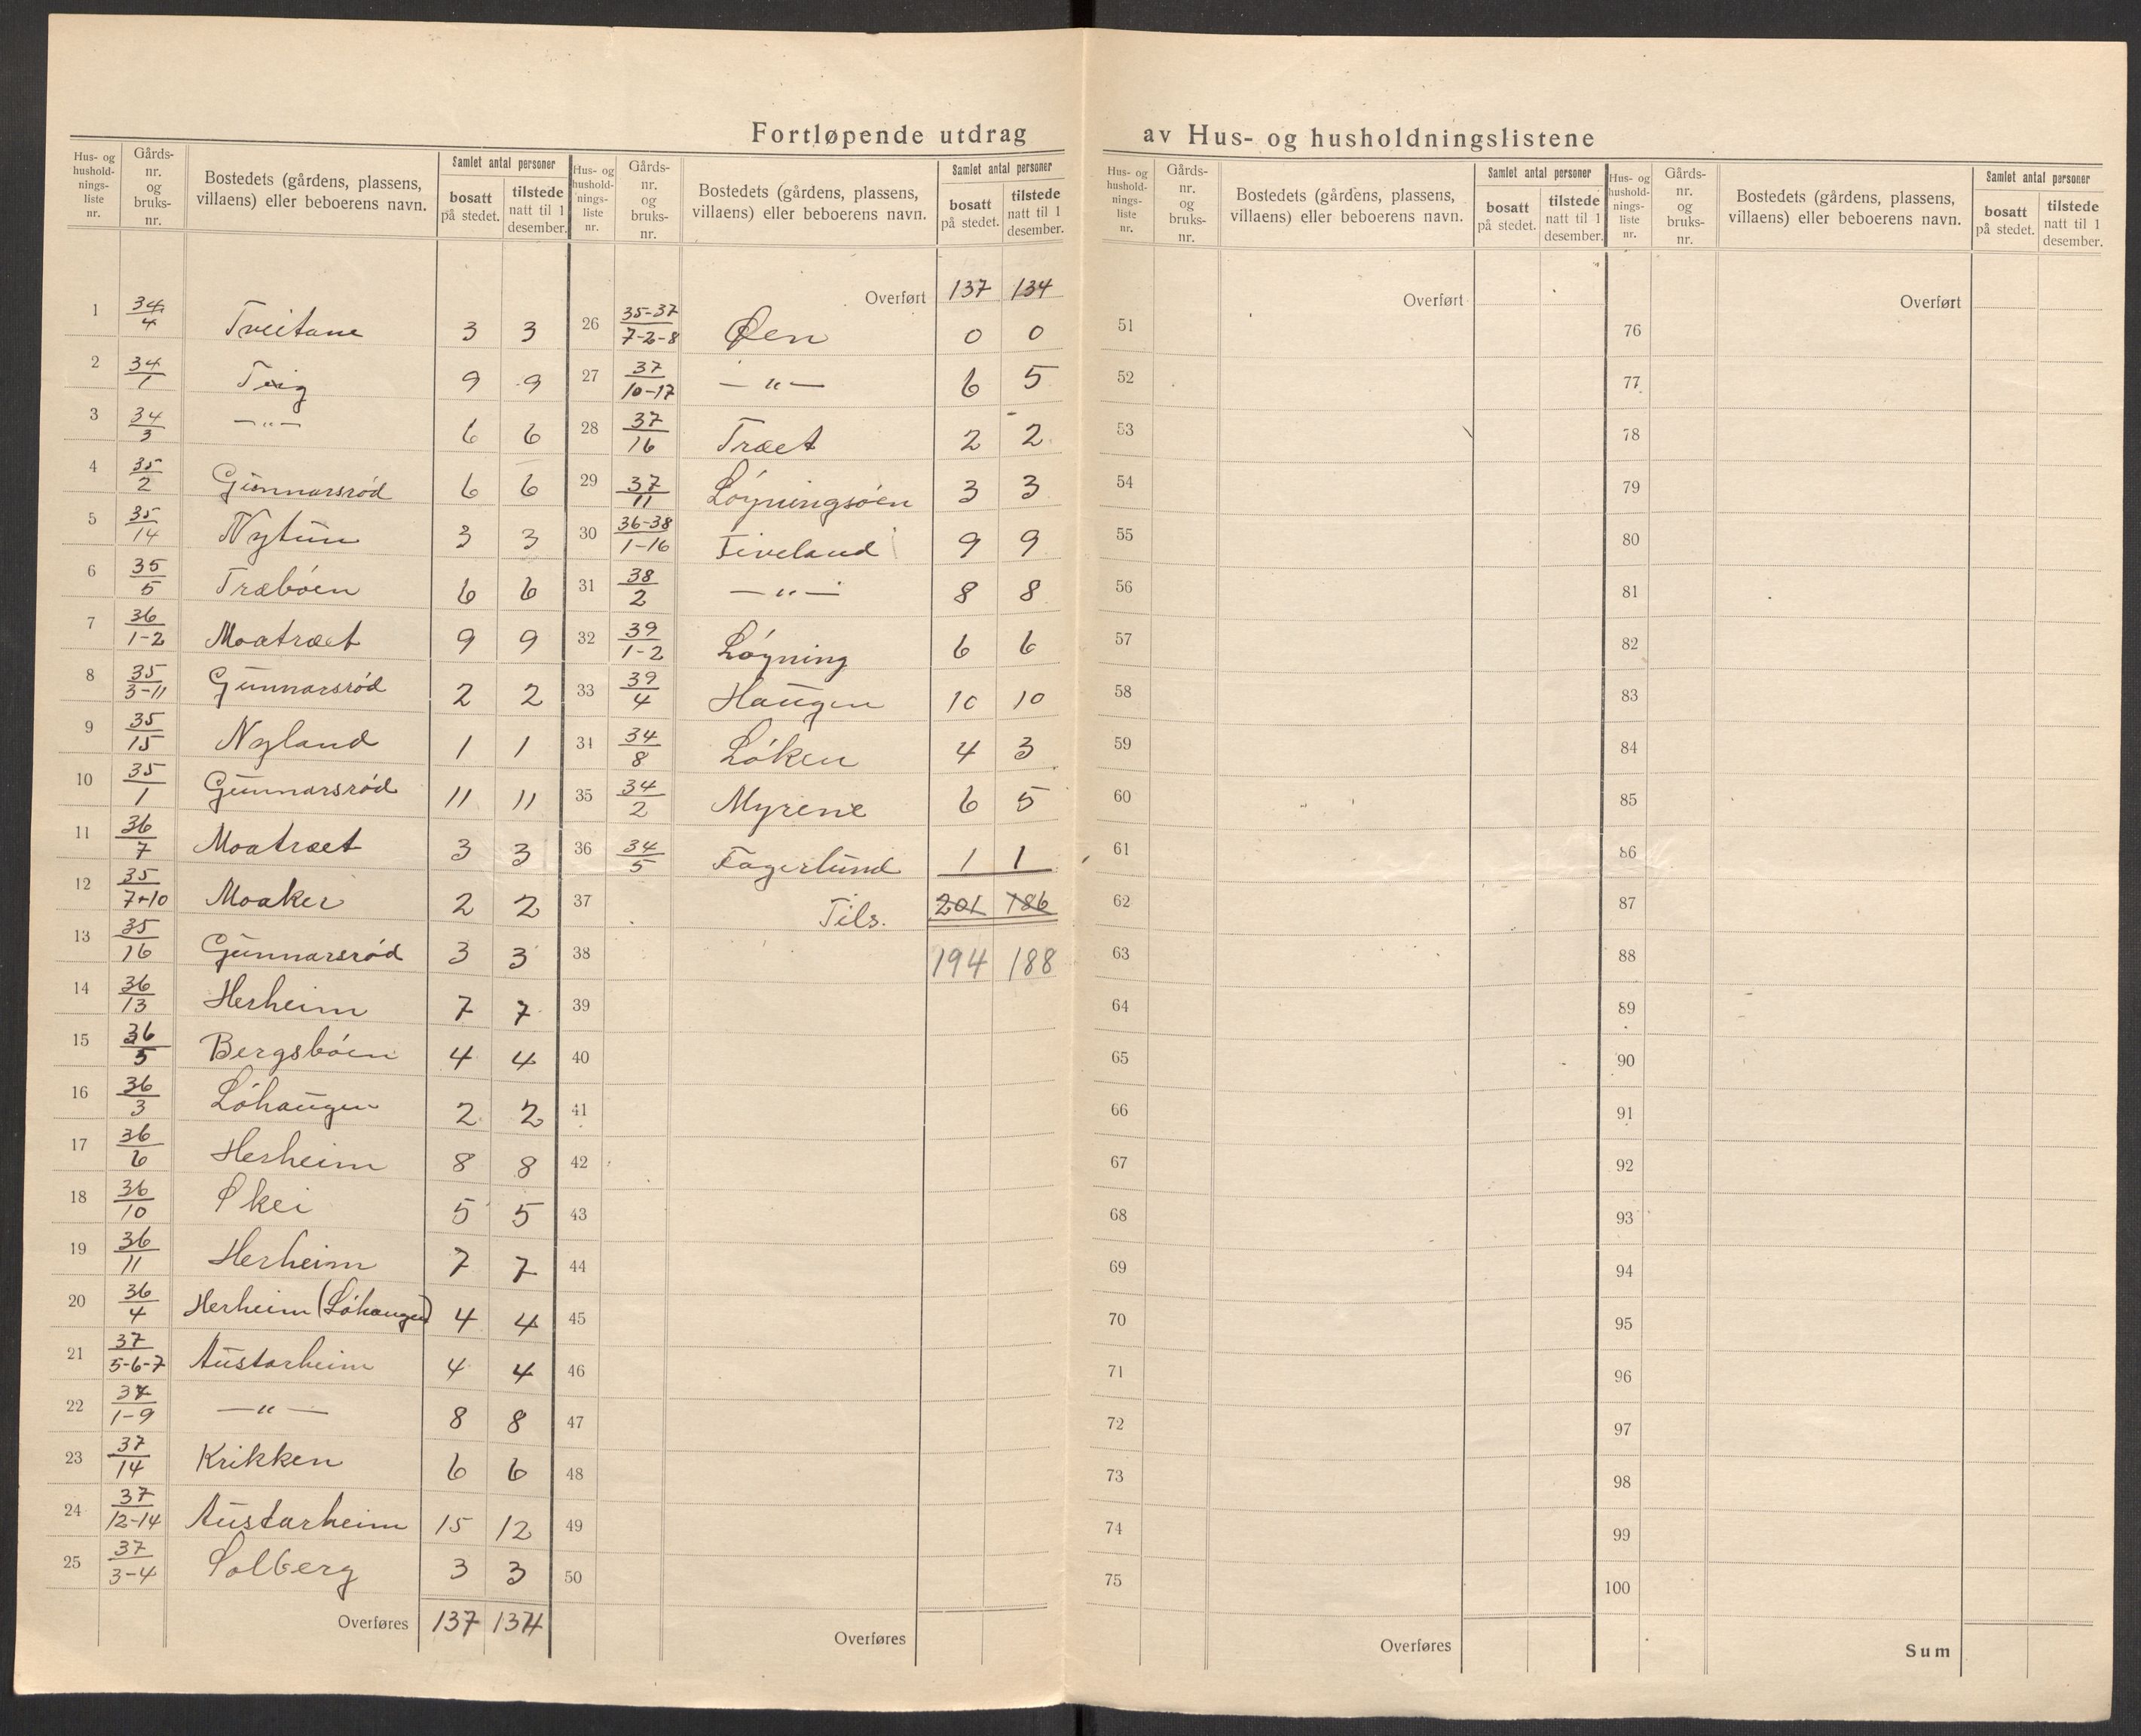 Fortløpende utdrag av Hus- og husholdningslistene
Hus- og hushold-nings-liste nr. | Gårds-nr. og bruks-nr. | Bostedets (gårdens, plassens, villaens) eller beboerens navn. | Samlet antal personer | bosatt på stedet. | tilstede natt til 1 desember.
1 34/4 Tveitane 3 3
2 34/1 Teig 9 9
3 34/3 —"— 6 6
4 35/2 Gunnarsrød 6 6
5 35/14 Nytun 3 3
6 35/5 Træbøen 6 6
7 36/1-2 Moatræet 9 9
8 35/3-11 Gunnarsrød 2 2
9 35/15 Nyland 1 1
10 35/1 Gunnarsrød 11 11
11 36/7 Moatræet 3 3
12 35/7+10 Moaker 2 2
13 35/16 Gunnarsrød 3 3
14 36/13 Herheim 7 7
15 36/5 Bergsbøen 4 4
16 36/3 Løhaugen 2 2
17 36/6 Herheim 8 8
18 36/10 Skei 5 5
19 36/11 Herheim 7 7
20 36/4 Herheim (Løhaugen) 4 4
21 37/5-6-7 Austarheim 4 4
22 37/1-9 —"— 8 8
23 37/14 Krikken 6 6
24 37/12-14 Austarheim 15 12
25 37/3-4 Solberg 3 3
Overføres 137 134
Hus- og hushold-nings-liste nr. | Gårds-nr. og bruks-nr. | Bostedets (gårdens, plassens, villaens) eller beboerens navn. | Samlet antal personer | bosatt på stedet. | tilstede natt til 1 desember.
Overført 137 134
26 35-37/7-2-8 Øen 0 0
27 37/10-17 —"— 6 5
28 37/16 Træet 2 2
29 37/11 Løyningsøen 3 3
30 36-38/1-16 Tiveland 9 9
31 38/2 —"— 8 8
32 39/1-2 Løyning 6 6
33 39/4 Haugen 10 10
34 34/8 Løken 4 3
35 34/2 Myrene 6 5
36 34/5 Fagerlund 1 1
37 Tils. 201 186
38 194 188
39
40
41
42
43
44
45
46
47
48
49
50
Overføres
Hus- og hushold-nings-liste nr. | Gårds-nr. og bruks-nr. | Bostedets (gårdens, plassens, villaens) eller beboerens navn. | Samlet antal personer | bosatt på stedet. | tilstede natt til 1 desember.
Overført
51
52
53
54
55
56
57
58
59
60
61
62
63
64
65
66
67
68
69
70
71
72
73
74
75
Overføres
Hus- og hushold-nings-liste nr. | Gårds-nr. og bruks-nr. | Bostedets (gårdens, plassens, villaens) eller beboerens navn. | Samlet antal personer | bosatt på stedet. | tilstede natt til 1 desember.
Overført
76
77
78
79
80
81
82
83
84
85
86
87
88
89
90
91
92
93
94
95
96
97
98
99
100
Sum